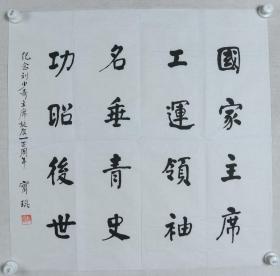 國家主席
工運領袖
名垂青史
功昭後世
纪念刘少奇主席诞辰一百周年